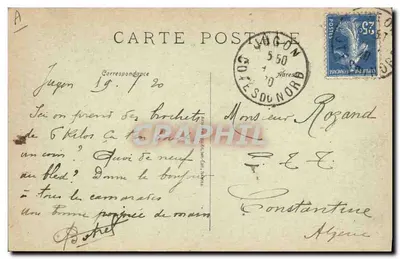 A
CARTE POSTALE
JUGON
5 50
COTES DU NORD
25
Correspondance
Adresse
Jugon 19 / 20
Ici on prend des brochets
de 6 Kilos
un coin ? Quoi de neuf
au bled ? Donne le bonjour
à tous les camarades
une bonne poignée de main
Monsieur Rozand
P.T.T
Constantine
Algérie
CPA